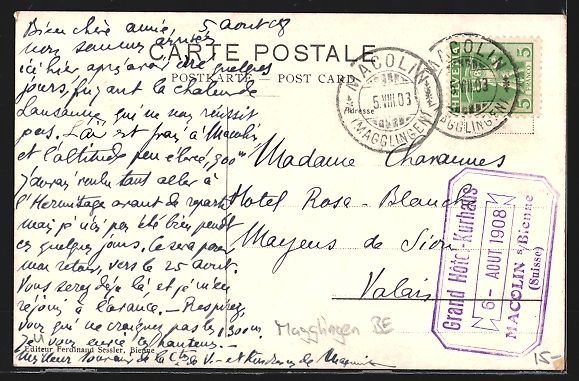 5 août 08
Bien chère amie,
nous sommes arrivés
ici hier après avoir été quelques
jours, fuyant la chaleur de
Lausanne qui ne nous réussit
pas. L'air est frais à Macolin
et l'altitude peu élevée, 900m
J'aurais voulu tant aller à
l'Hermitage avant de repartir
mais je n'ai pas été bien pendt
ces quelques jours. Ce sera pour
mon retour, vers le 25 août.
Vous serez déjà là et je m'en
réjouis à l'avance. – Respirez,
vous qui ne craignez pas les 1300m.
Je vous envie ces hauteurs. –
Meilleur souvenir de la
CARTE POSTALE
POSTKARTE — POST CARD
Adresse
MACOLIN
5.VIII.03
(MAGGLINGEN)
MACOLIN
VIII.03
(MAGGLINGEN)
HELVETIA
5 FRANCO 5
Madame Chavannes
Hotel Rosa-Blanche
Mayens de Sion
Valais
Grand Hôtel-Kurhaus
6 - AOUT 1908
MACOLIN s/Bienne
(Suisse)
Magglingen BE
15.-
Editeur Ferdinand Sessler, Bienne